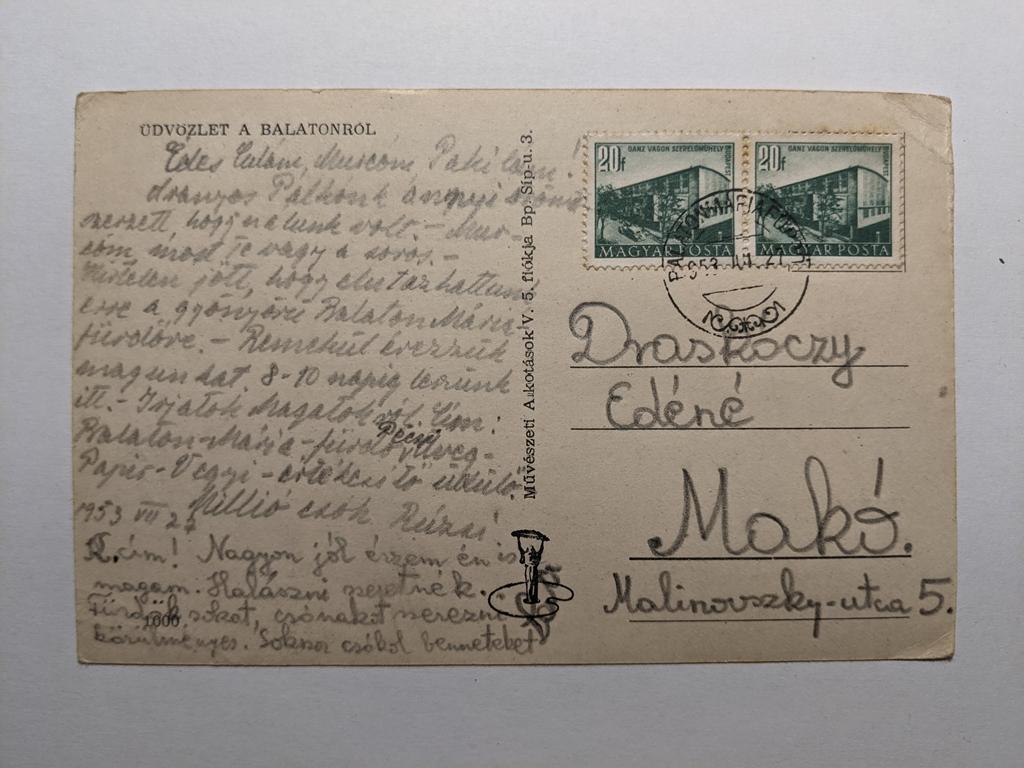 ÜDVÖZLET A BALATONRÓL
Édes
Aranyos Palkónk annyi
szerzett, hogy nálunk volt. – Mur-
cóm, most te vagy a soros. –
Hirtelen jött, hogy elutazhattunk
erre a gyönyörű Balaton Mária-
fürdőre. – Remekül érezzük
magunkat. 8-10 napig leszünk
itt. – Irjatok Magatokról. Cím:
Balaton-Mária-fürdő, Pécsi Üveg-
Papír-Vegyi-értékesítő üdülő.
Millió csók Rúzsi
1953 VII 27
K. cím! Nagyon jól érzem én is
magam. Halászni szeretnék.
Fürdök sokat, csónakot szerezni
körülményes. Sokszor csókol benneteket
1000
Művészeti Alkotások V. 5. fiókja Bp. Síp-u. 3.
20f GANZ VAGON SZERELŐMŰHELY BUDAPEST
MAGYAR POSTA
20f GANZ VAGON SZERELŐMŰHELY BUDAPEST
MAGYAR POSTA
Draskóczy
Edéné
Makó.
Malinovszky-utca 5.